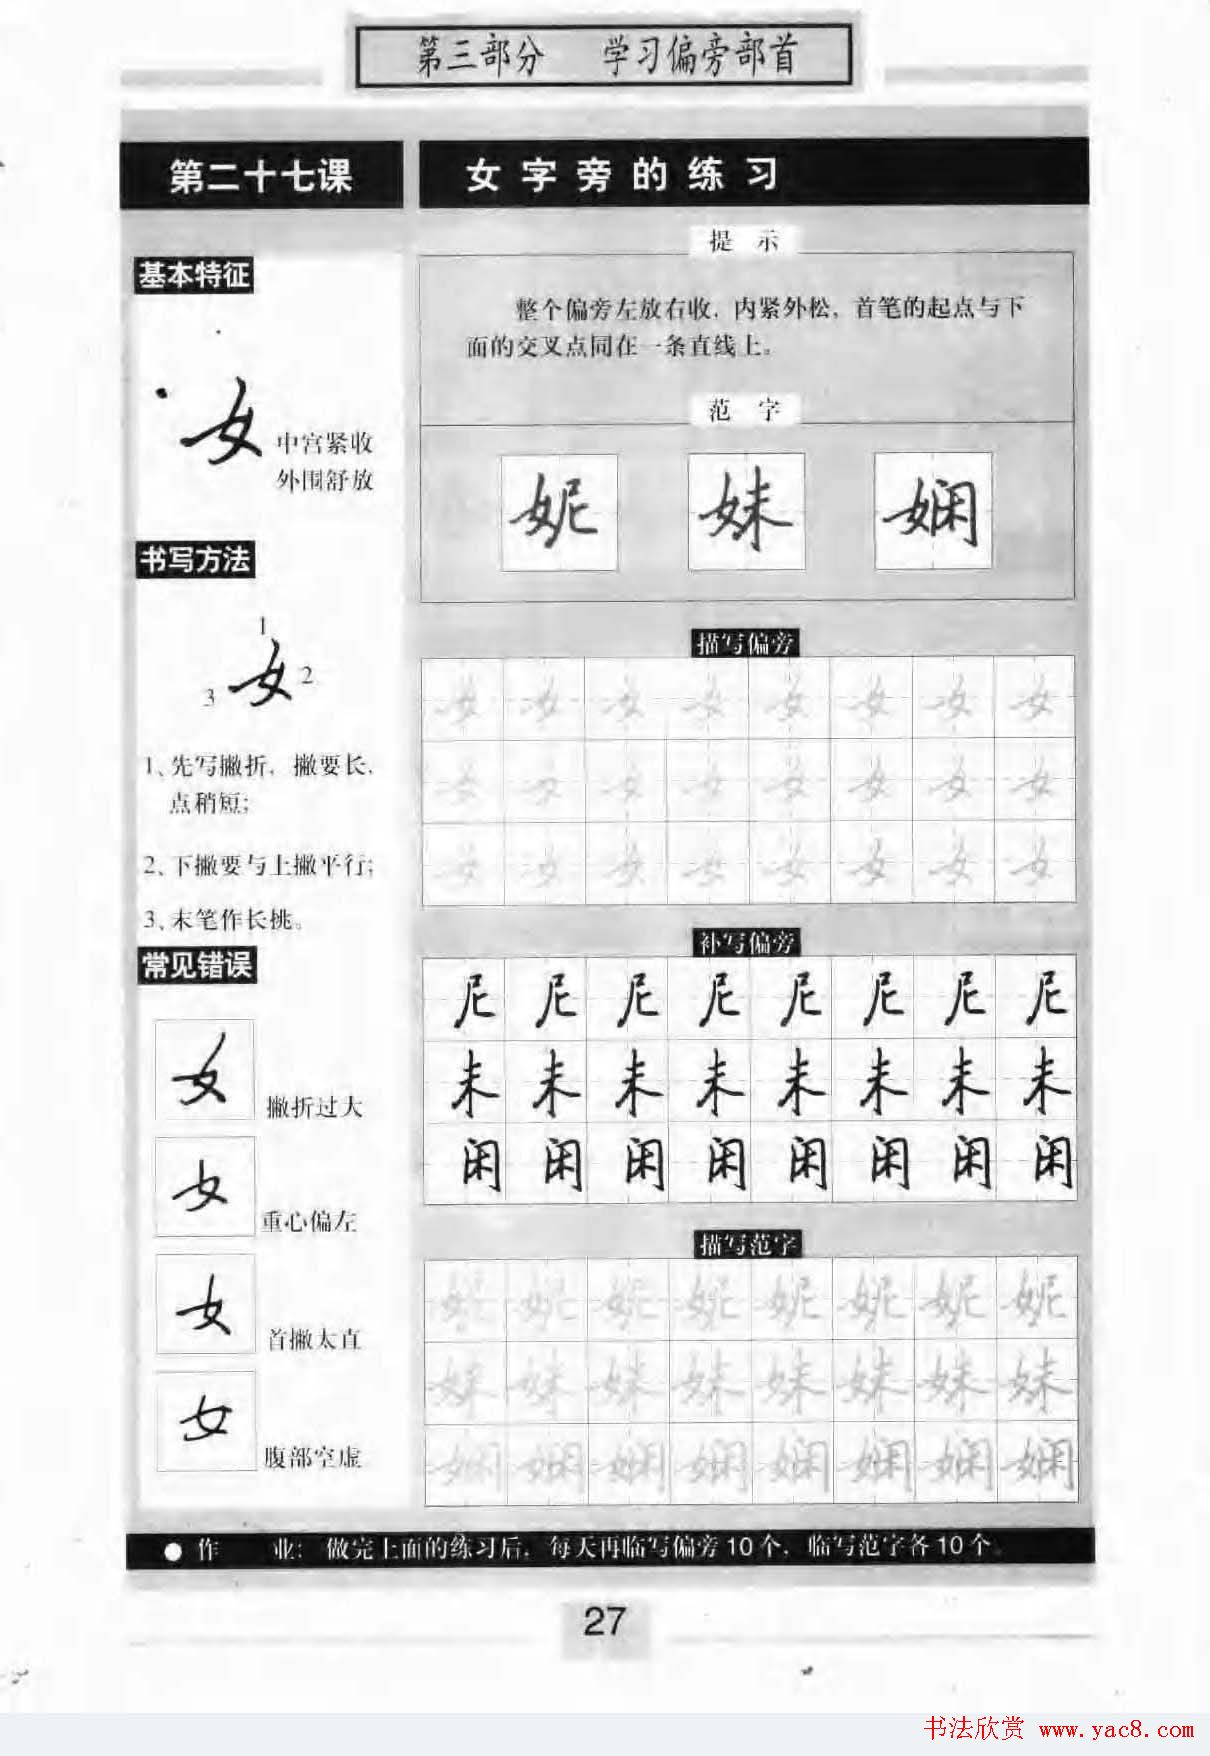 第三部分 学习偏旁部首
第二十七课
女字旁的练习
基本特征
女
中宫紧收
外围舒放
书写方法
1
女
2
3
1、先写撇折，撇要长，
点稍短；
2、下撇要与上撇平行；
3、末笔作长挑。
常见错误
女
撇折过大
女
重心偏左
女
首撇太直
女
腹部空虚
提 示
整个偏旁左放右收，内紧外松，首笔的起点与下
面的交叉点同在一条直线上。
范 字
妮 妹 娴
描写偏旁
女 女 女 女 女 女 女 女
女 女 女 女 女 女 女 女
女 女 女 女 女 女 女 女
补写偏旁
尼 尼 尼 尼 尼 尼 尼 尼
未 未 未 未 未 未 未 未
闲 闲 闲 闲 闲 闲 闲 闲
描写范字
妮 妮 妮 妮 妮 妮 妮 妮
妹 妹 妹 妹 妹 妹 妹 妹
娴 娴 娴 娴 娴 娴 娴 娴
●作 业：做完上面的练习后，每天再临写偏旁10个，临写范字各10个
27
书法欣赏 www.yac8.com